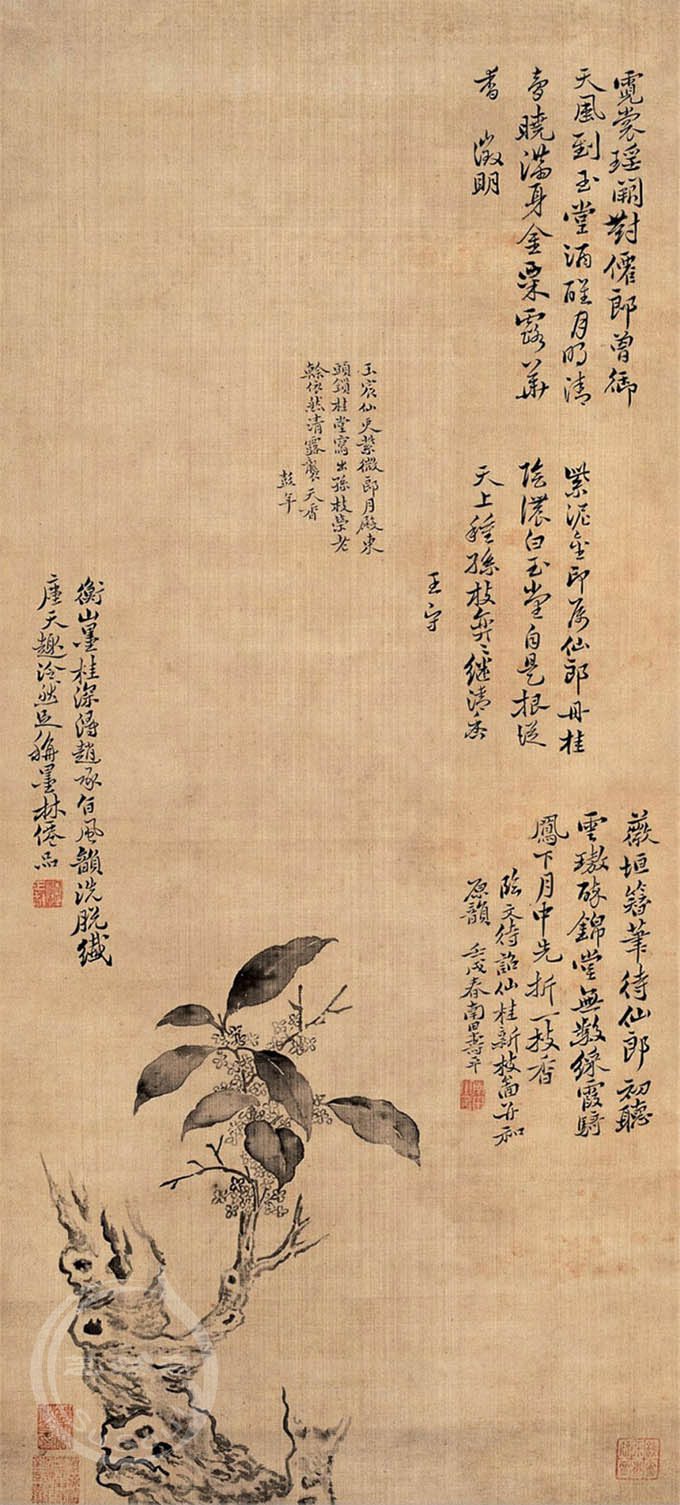 霓裳瑶闕對僊郎曾御
天風到玉堂酒醒月明清
旹曉滿身金粟露華
香　徵明
紫泥金印屬仙郎丹桂
陰濃白玉堂自是根從
天上種孫枝奕奕繼清香
王守
玉宸仙吏紫微郎月殿東
頭鎖桂堂寫出孫枝榮老
榦依然清露襲天香
彭年
薇垣簪筆待仙郎初聽
雲璈醉錦堂無數綵霞騎
鳳下月中先折一枝香
臨文待詔仙桂新枝啚并和
原韻　壬戌春南田壽平
衡山墨桂深得趙承旨風韻洗脫纖
塵天趣泠然足稱墨林僊品